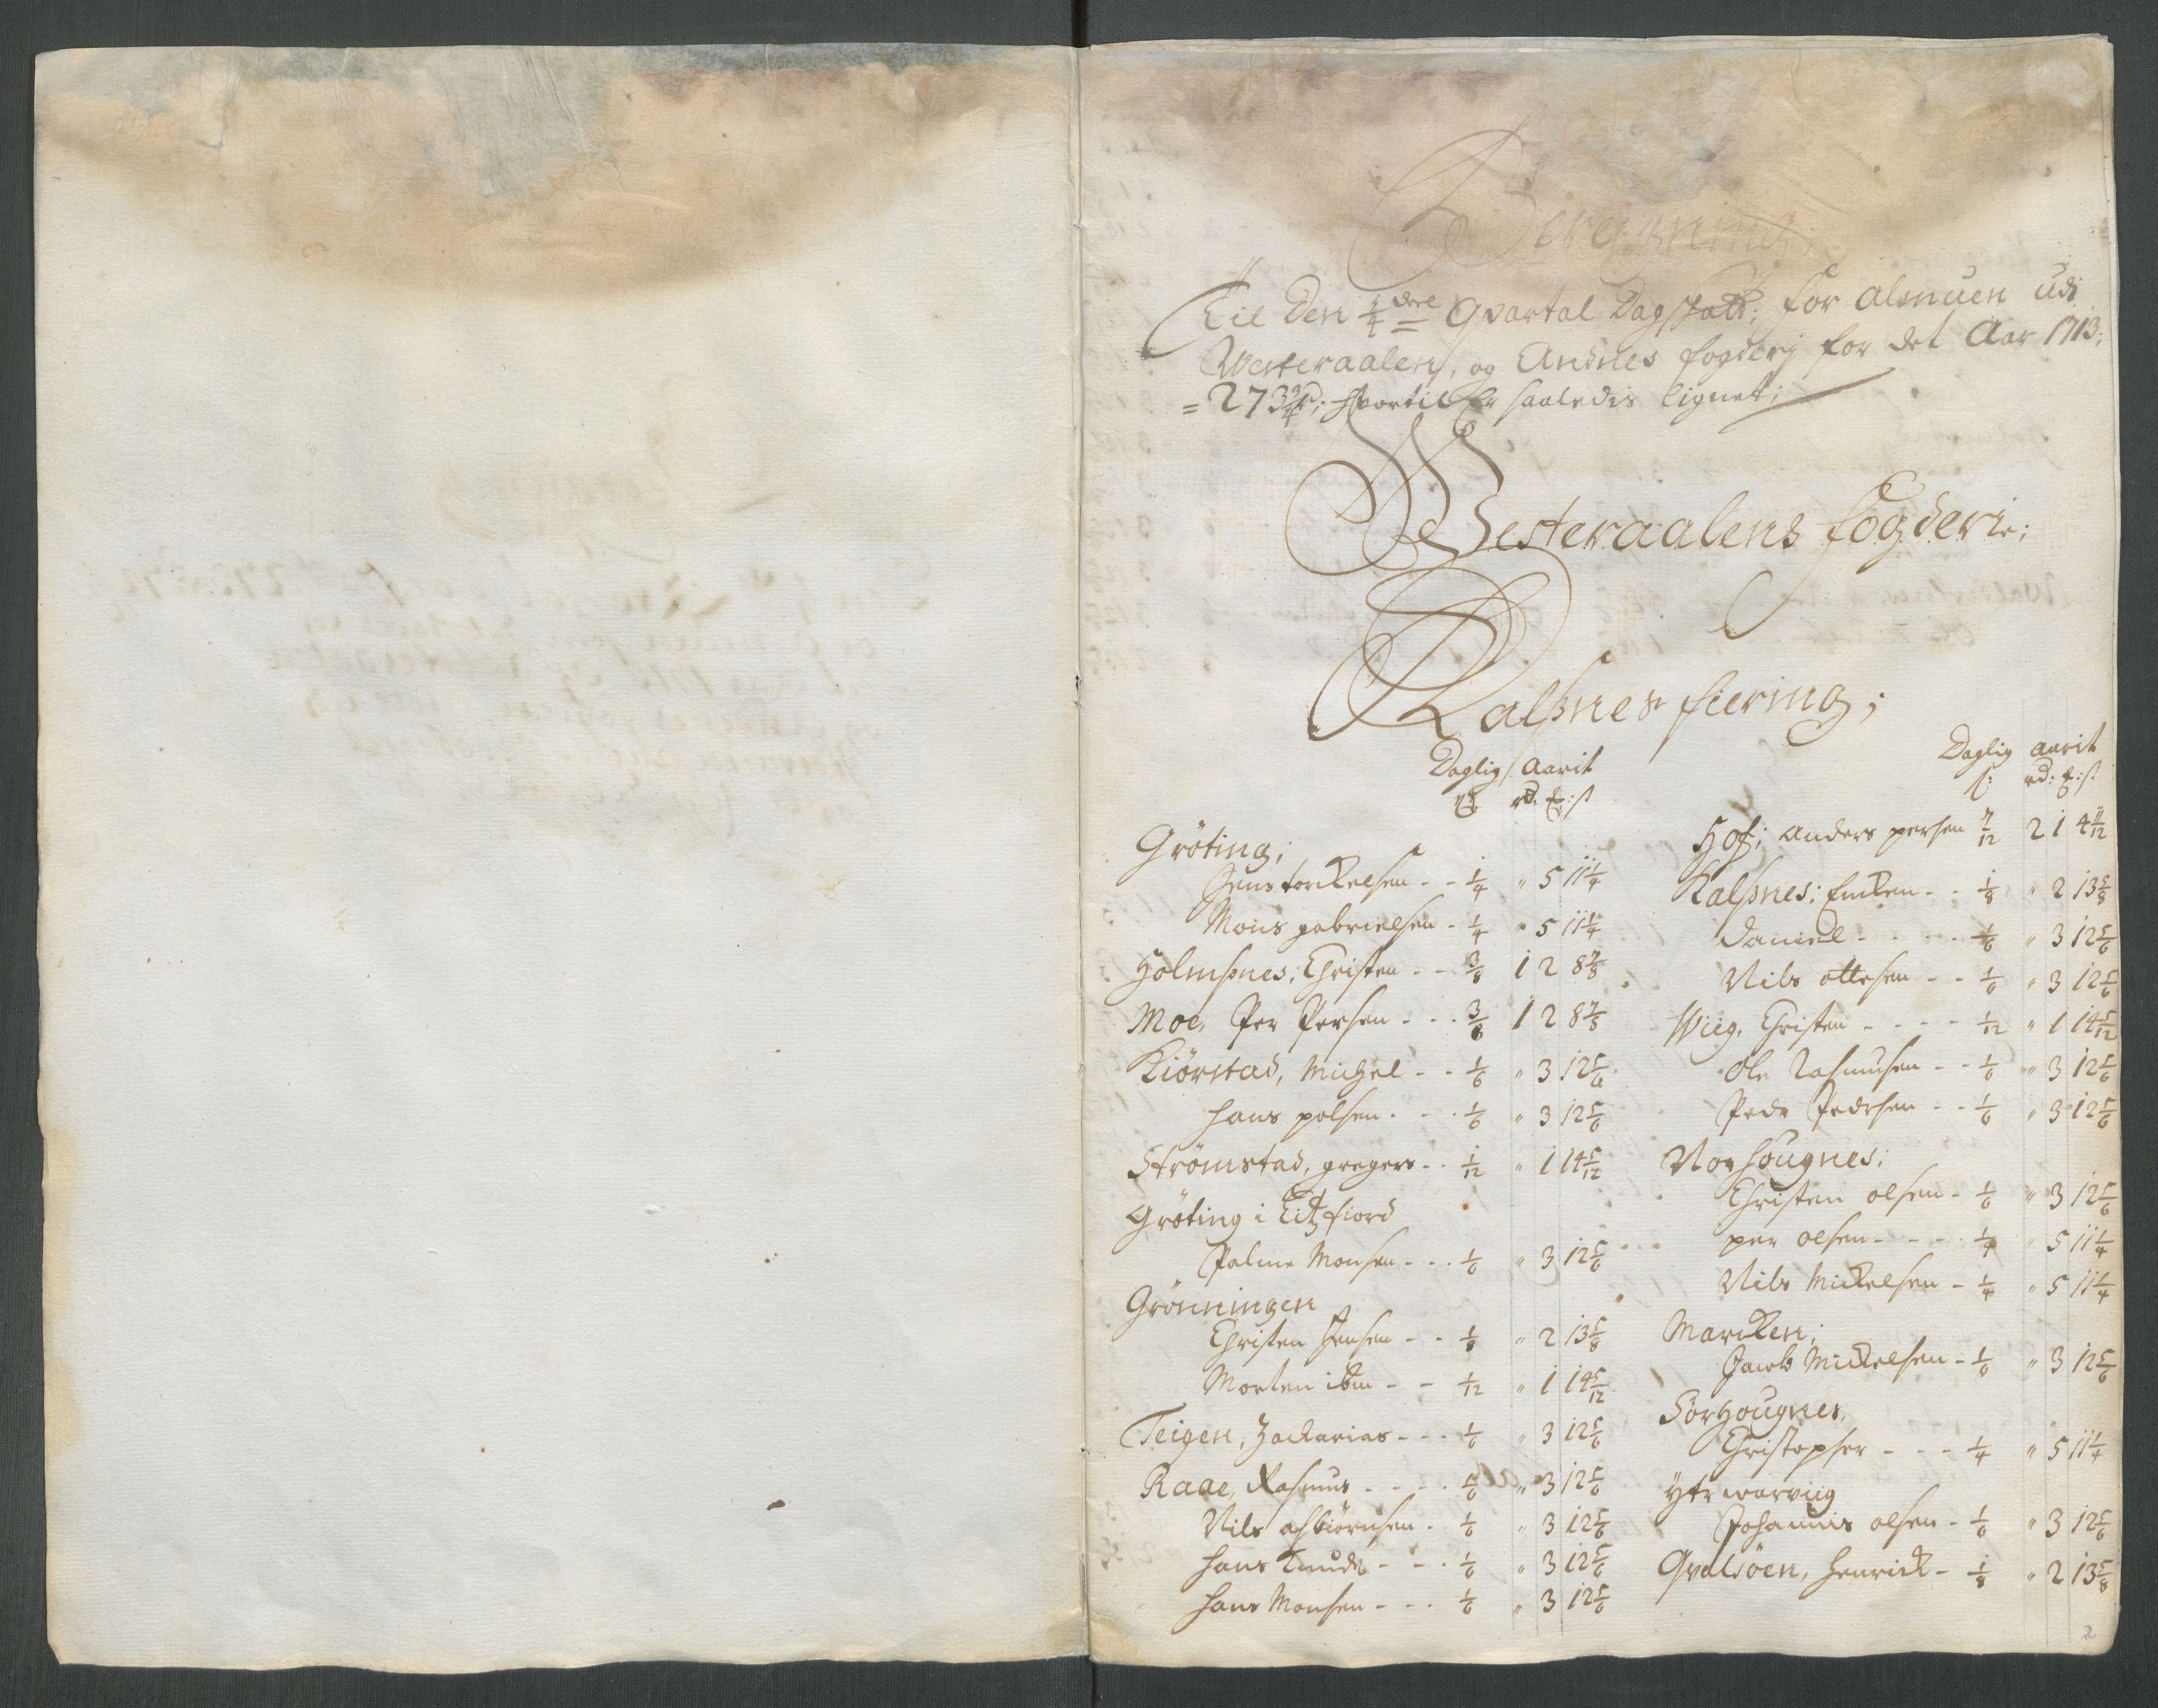 Beregning
Til den 1/4 deel Qvartal Dagskatt; for Almuen udi
Westeraalen, og Andnes fogderj for det Aar 1713;
= 273 3/4 ; Hvortil Er saaledis lignet;
Westeraalens fogderie;
Kalsnes fiering;
Daglig Aarit
rd: ß
Grøting;
Jens torckelsen - - 1/4 " 5 11 1/4
Mons gabrielsen - 1/4 " 5 11 1/4
Holmsnes; Christen - - 3/8 1 2 8 7/8
Moe, Per Persen - - - 3/8 1 2 8 7/8
Kiørstad, Michel - - 1/6 " 3 12 5/6
Hans polsen - - - 1/6 " 3 12 5/6
Strømstad, gregers - - 1/12 " 1 14 5/12
Grøting i Eitzfiord
Palme Monsen - - - 1/6 " 3 12 5/6
Grønningen
Christen Jensen - - 1/8 " 2 13 5/8
Morten ibm - - 1/12 " 1 14 5/12
Teigen, Zackarias - - - 1/6 " 3 12 5/6
Raae, Rasmus - - - - 1/6 " 3 12 5/6
Nils asbiørnsen - 1/6 " 3 12 5/6
Hans Knuds - - - 1/6 " 3 12 5/6
Hans Monsen - - - 1/6 " 3 12 5/6
Daglig Aarit
ß: rd: ß
Hof; Anders persen 7/12 2 1 4 11/12
Kalsnes; Encken - - 1/8 " 2 13 5/8
Daniel - - - - 1/6 " 3 12 5/6
Nils ottesen - - 1/6 " 3 12 5/6
Wiig, Christen - - - - 1/12 " 1 14 5/12
Ole Rasmusen - - 1/6 " 3 12 5/6
Peder Pedersen - - 1/6 " 3 12 5/6
Nor hougnes;
Christen olsen - 1/6 " 3 12 5/6
per olsen - - - - 1/4 " 5 11 1/4
Nils Mickelsen - 1/4 " 5 11 1/4
Marcken;
Jacob Mickelsen - 1/6 " 3 12 5/6
Sørhougnes,
Christopher - - - 1/4 " 5 11 1/4
ytr warviig
Johannis olsen - 1/6 " 3 12 5/6
Qvalsøen, Henrick - 1/8 " 2 13 5/8
2